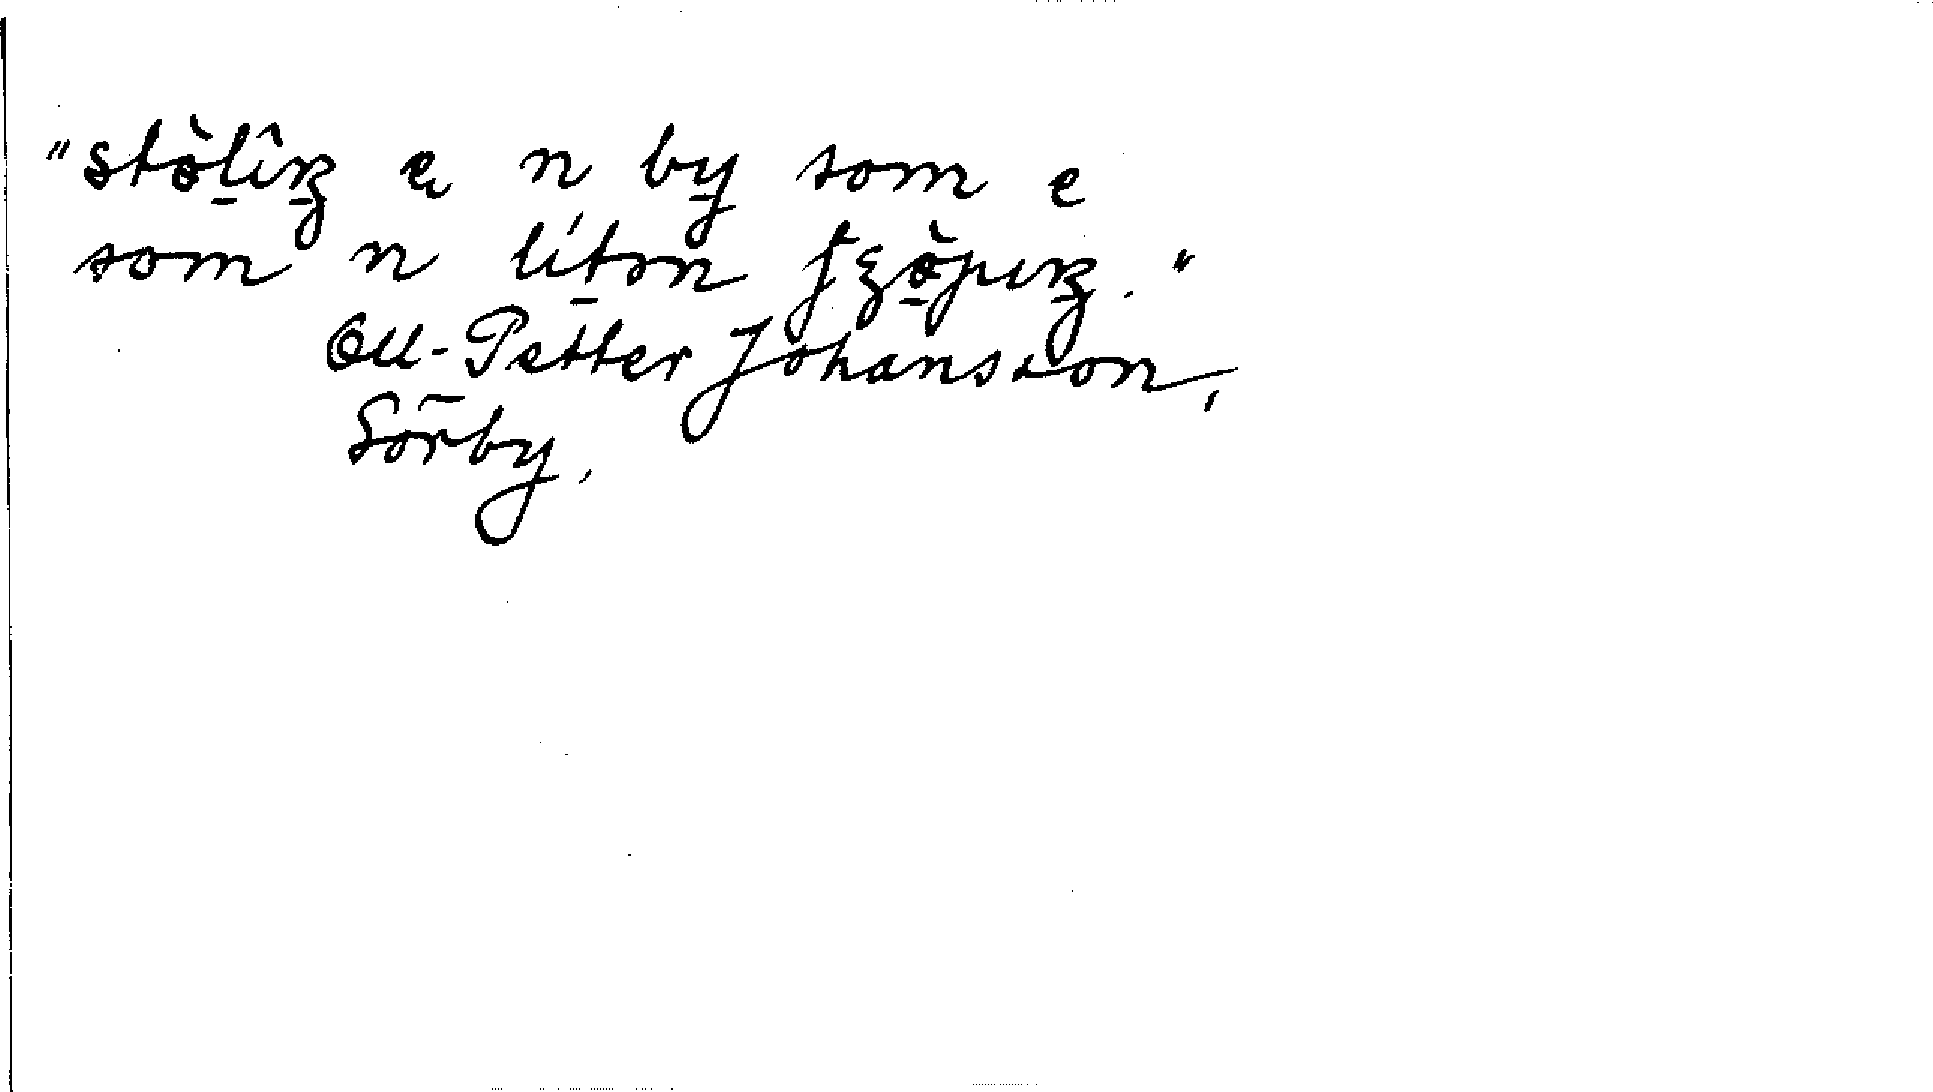 "stö̀lîŋ e n by som e
som n líton fʒö̀pıŋ."
Oll-Petter Johansson,
Sörby.